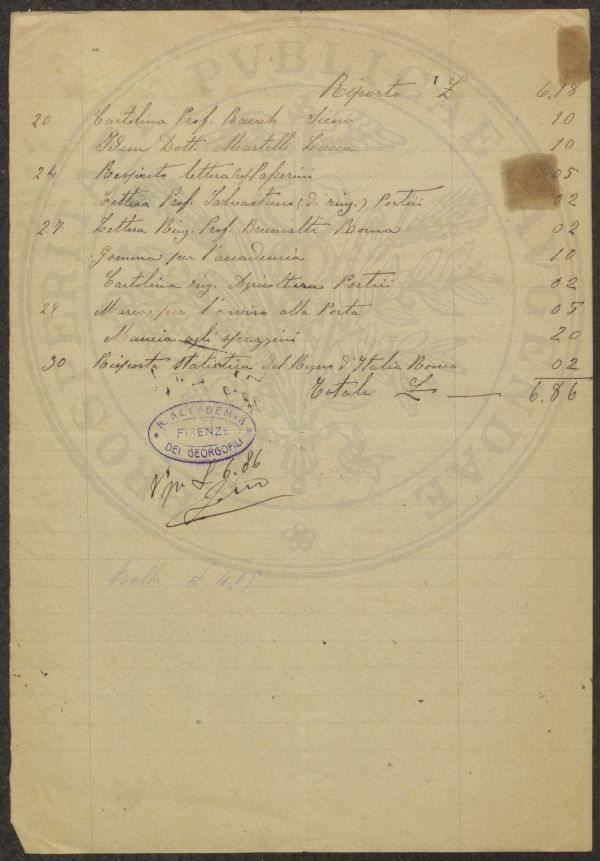 Riporto £ 6.18
20 Cartolina Prof. Siena 10
Idem Dott. Martelli Lucca 10
24 Risposta lettera Passerini 05
Lettera Prof. Salvastano (di ring.) Portici 02
27 Lettera Ring. Prof. Brunialti Roma 02
Gomma per l'accademia 10
Cartolina ring. Agricoltura Portici 02
29 per l'avviso alla Porta 05
Mancia agli spazzini 20
30 Risposta Statistica del Regno d'Italia Roma 02
Totale £ 6.86
R. ACCADEMIA
FIRENZE
DEI GEORGOFILI
V. per £ 6.86
Bolli £ 4.05
PROSPERITATI PVBLICAE AVGENDAE